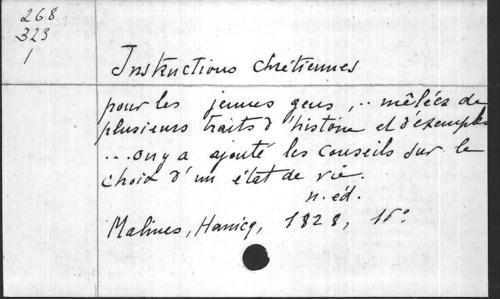 268
323
1
Instructions chrétiennes
pour les jeunes gens, .. mêlées de
plusieurs traits d'histoire et d'exemples
... on y a ajouté les conseils sur le
choix d'un état de vie.
n. éd.
Malines, Hanicq, 1828, 16°